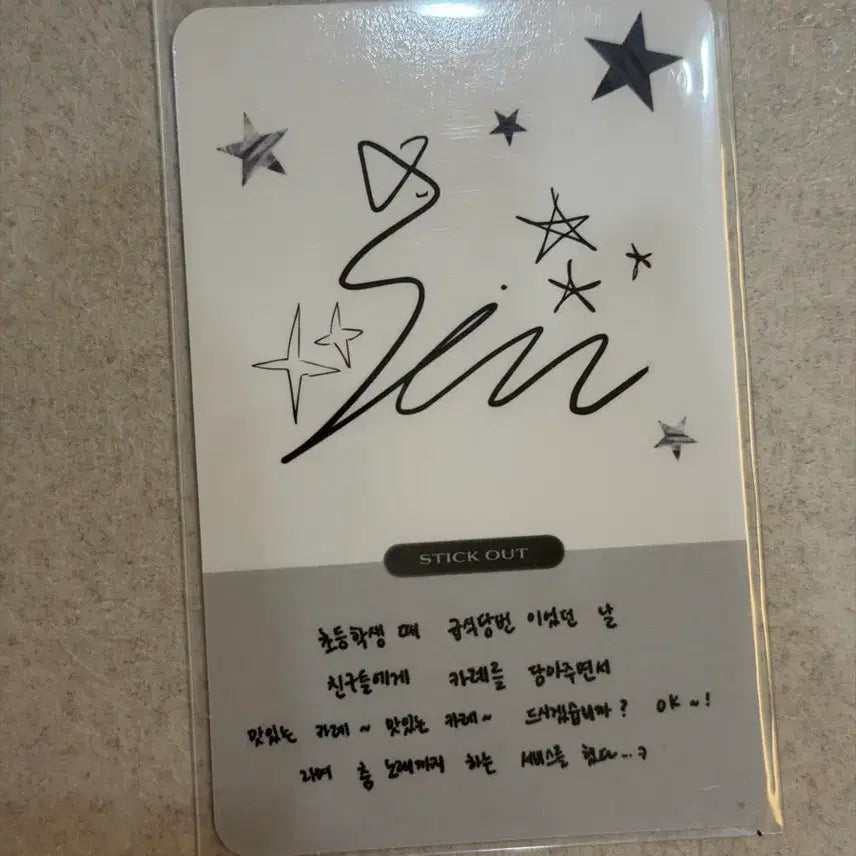 STICK OUT
초등학생 때 급식당번 이었던 날
친구들에게 카레를 담아주면서
맛있는 카레~ 맛있는 카레~ 드시겠습니까? OK~!
라며 춤 노래까지 하는 서비스를 했다...